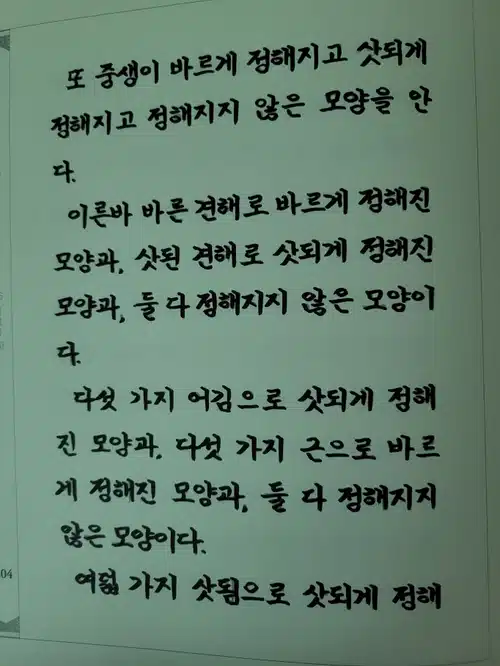 또 중생이 바르게 정해지고 삿되게
정해지고 정해지지 않은 모양을 안
다.
이른바 바른 견해로 바르게 정해진
모양과, 삿된 견해로 삿되게 정해진
모양과, 둘 다 정해지지 않은 모양이
다.
다섯 가지 어김으로 삿되게 정해
진 모양과, 다섯 가지 근으로 바르
게 정해진 모양과, 둘 다 정해지지
않은 모양이다.
여덟 가지 삿됨으로 삿되게 정해
04